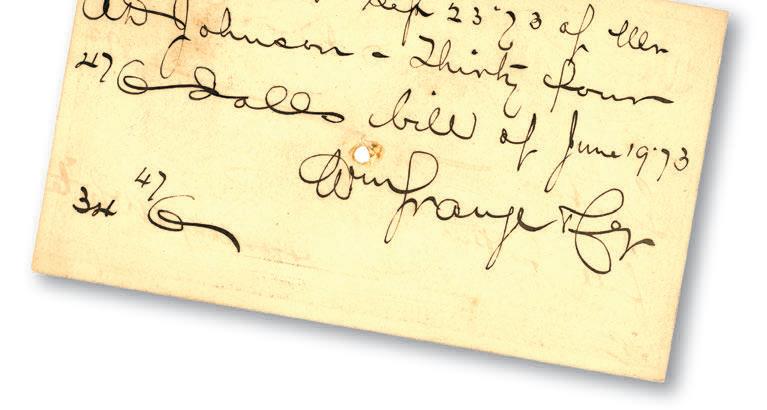 Sep 23 '73 of Mr
A D Johnson - Thirty four
47/ dolls bill of June 19 '73
Wm Grange & Co
34 47/